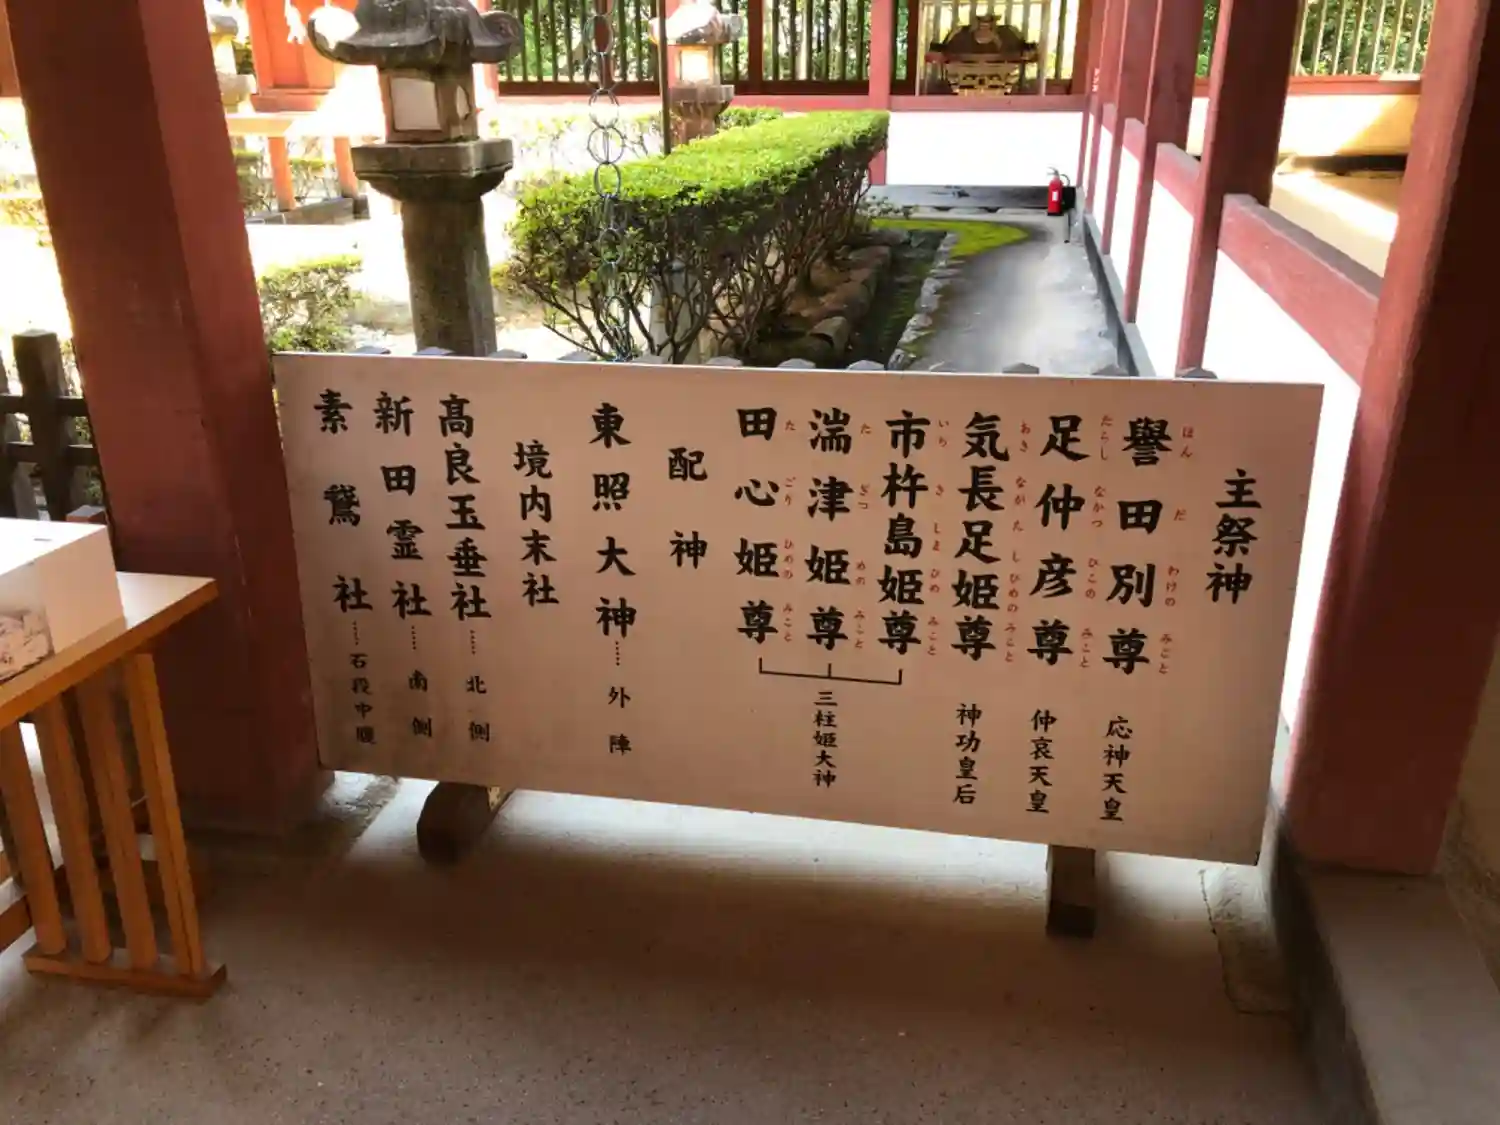 主祭神
譽田別尊 応神天皇
ほんだわけのみこと
足仲彦尊 仲哀天皇
たらしなかつひこのみこと
気長足姫尊 神功皇后
おきながたらしひめのみこと
市杵島姫尊
いちきしまひめのみこと
湍津姫尊
たぎつひめのみこと
田心姫尊
たごりひめのみこと
三柱姫大神
配神
東照大神……外陣
境内末社
髙良玉垂社……北側
新田霊社……南側
素鵞社……石段中腰